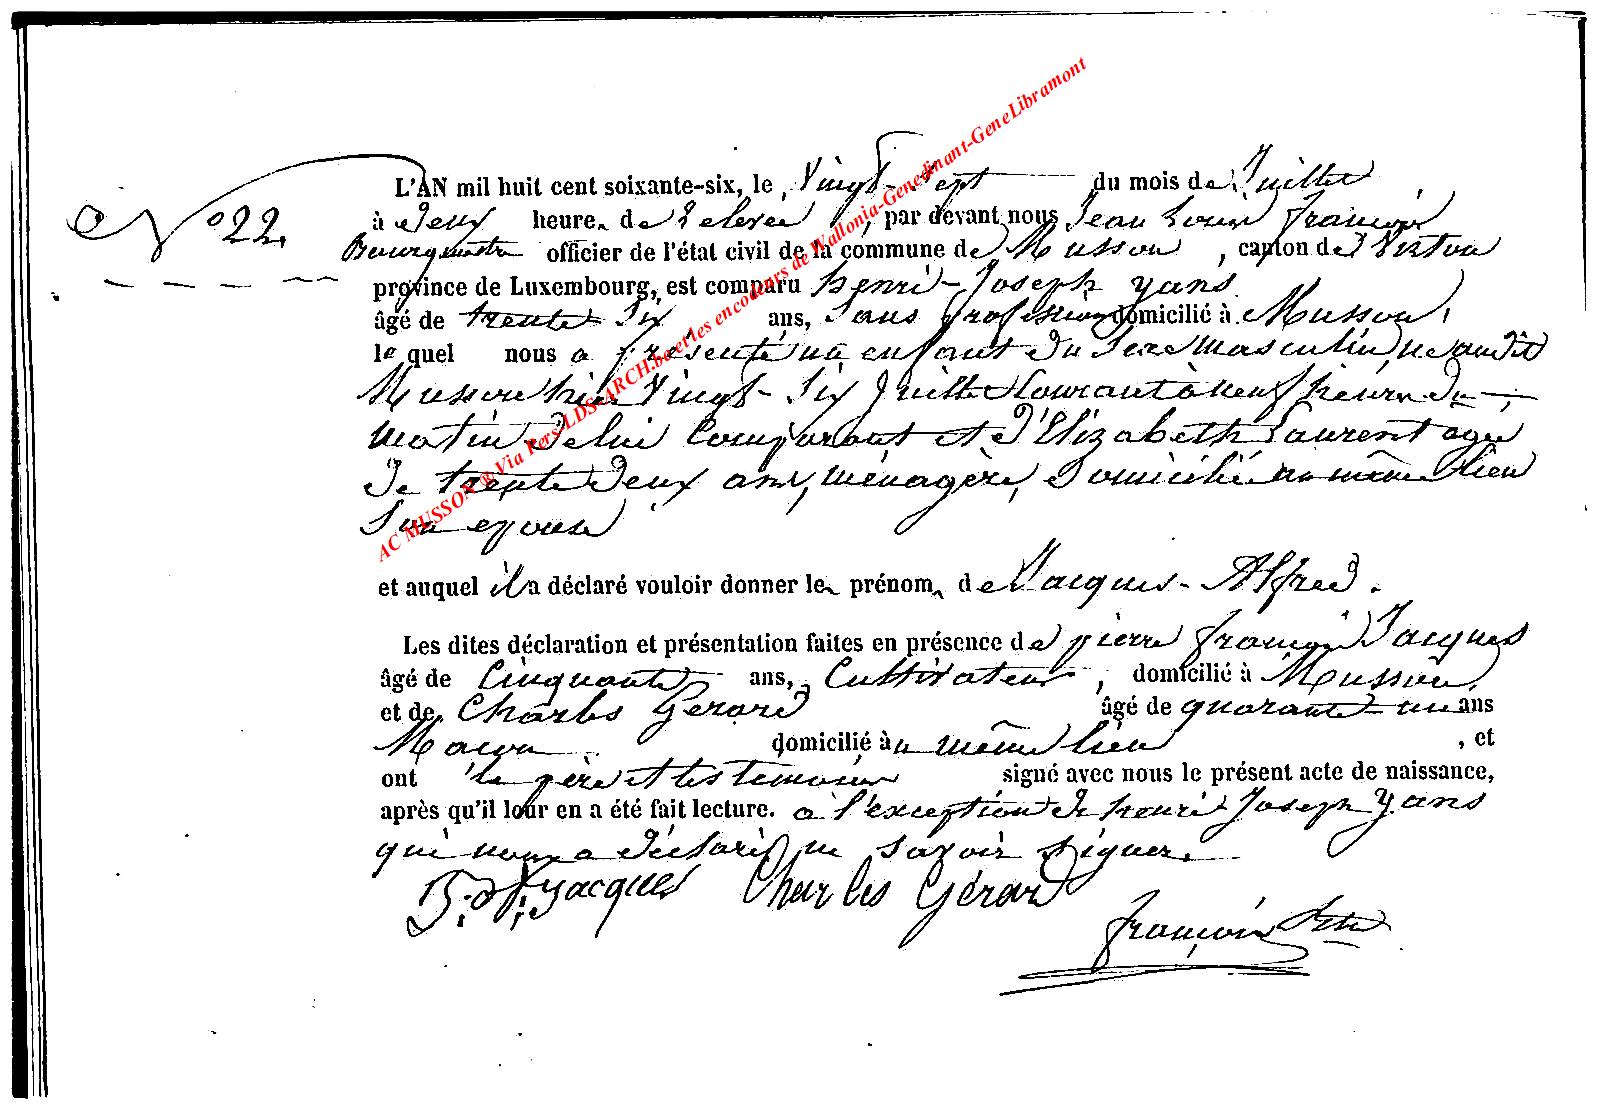 L'AN mil huit cent soixante-six, le Vingt-Sept du mois de Juillet
N° 22. à Deux heure de Relevée, par devant nous Jean Louis François
Bourgmestre officier de l'état civil de la commune de Musson, canton de Virton
province de Luxembourg, est comparu henri-Joseph yans
âgé de trente Six ans, Sans profession domicilié à Musson,
lequel nous a présenté un enfant du Sexe masculin, né audit
Musson hier Vingt-Six Juillet Courant à neuf heures du
matin de lui Comparant et d'Elizabeth Laurent agée
de trente Deux ans, ménagère, Domicilié au même lieu
Son epouse
et auquel il a déclaré vouloir donner le prénom de Jacques-Alfred.
Les dites déclaration et présentation faites en présence de pierre françois Jacques
âgé de Cinquante ans, Cultivateur, domicilié à Musson,
et de Charles Gérard âgé de quarante-un ans
Maçon domicilié au même lieu, et
ont le père et les temoins signé avec nous le présent acte de naissance,
après qu'il leur en a été fait lecture. a l'exception de henri Joseph Yans
qui nous a déclaré ne savoir signer.
P. f. Jacques Charles Gérard
françois
AC MUSSON ® Via Pers-LDS-ARCH.be et les encodeurs de Wallonia-Genedinant-GeneLibramont